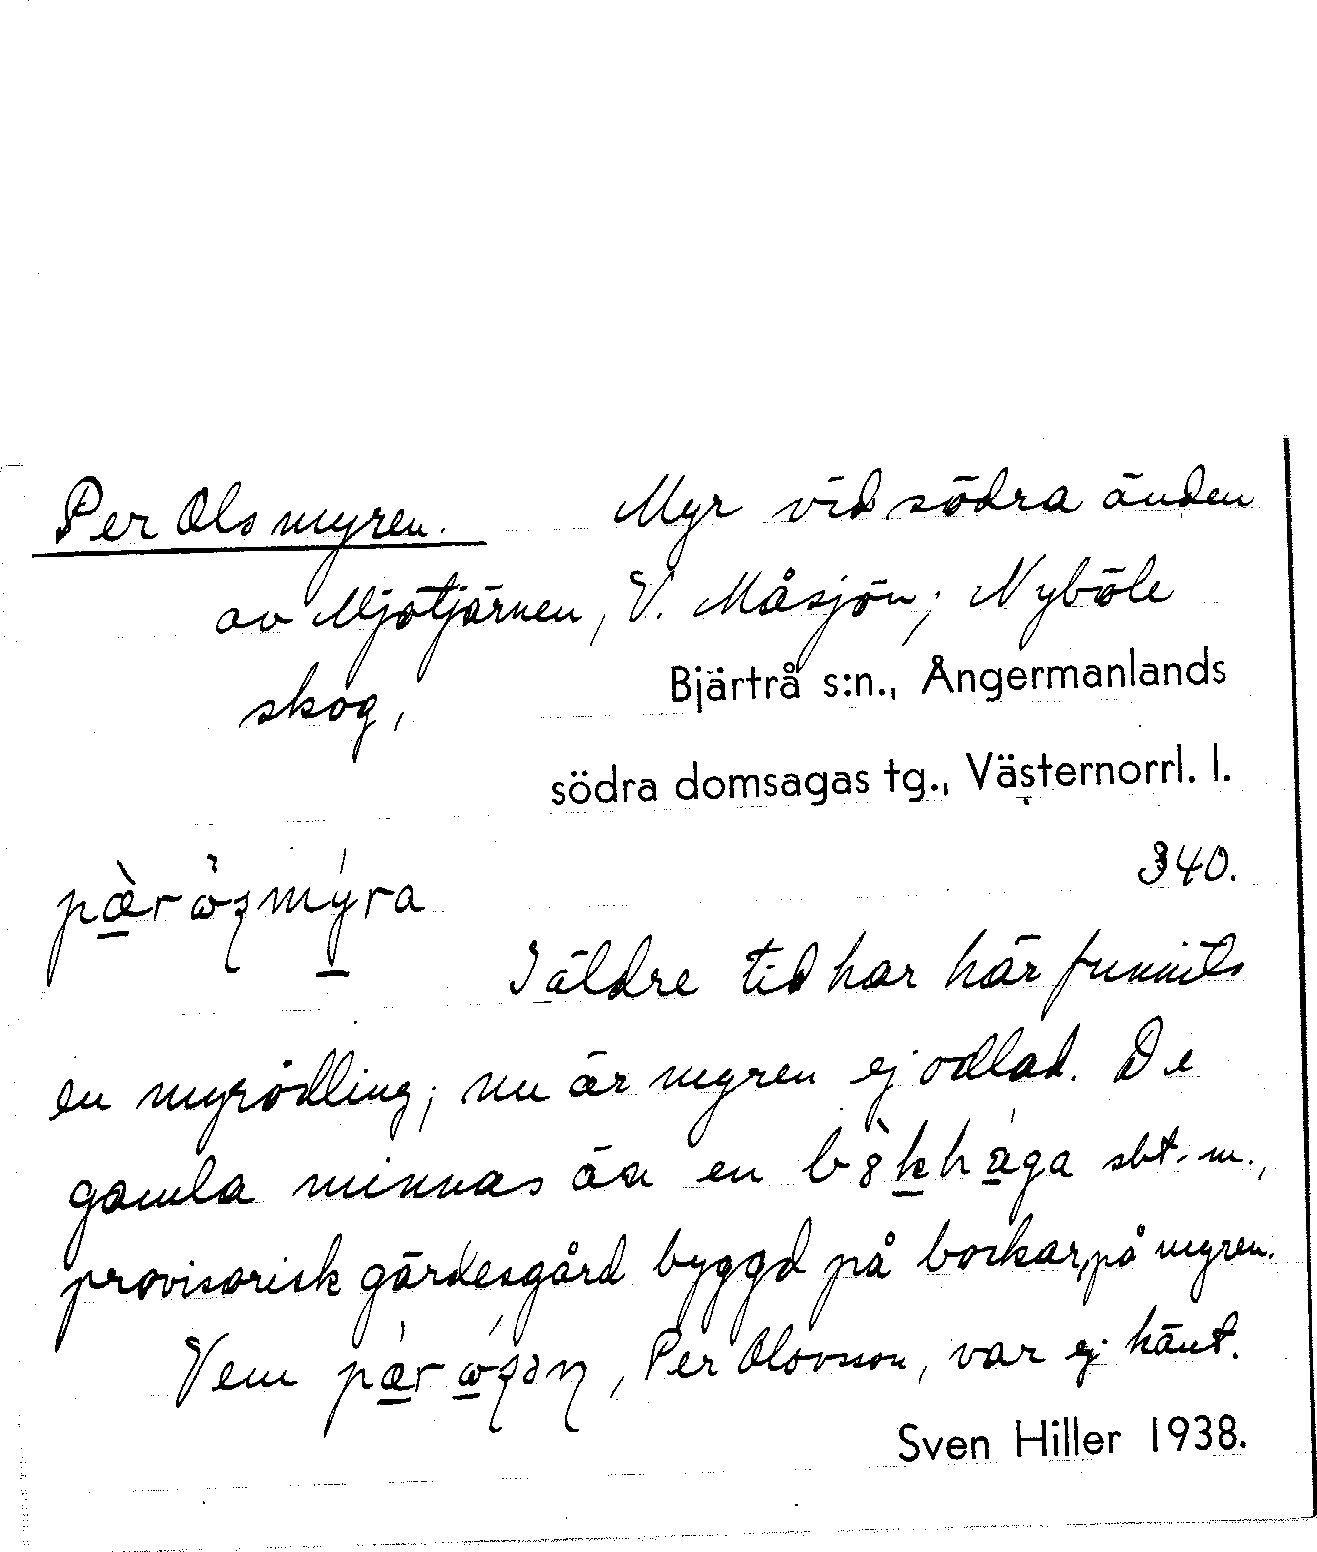 Per Olsmyren. Myr vid södra änden
av Mjötjärnen, V. Måsjön; Nyböle
skog, Bjärtrå s:n., Ångermanlands
södra domsagas tg., Västernorrl. l.
340.
I äldre tid har här funnits
en myrodling; nu är myren ej odlad. De
gamla minnas än en sbt. m.,
provisorisk gärdesgård byggd på bockar, på myren.
Vem , Per Olovsson, var ej känt.
Sven Hiller 1938.